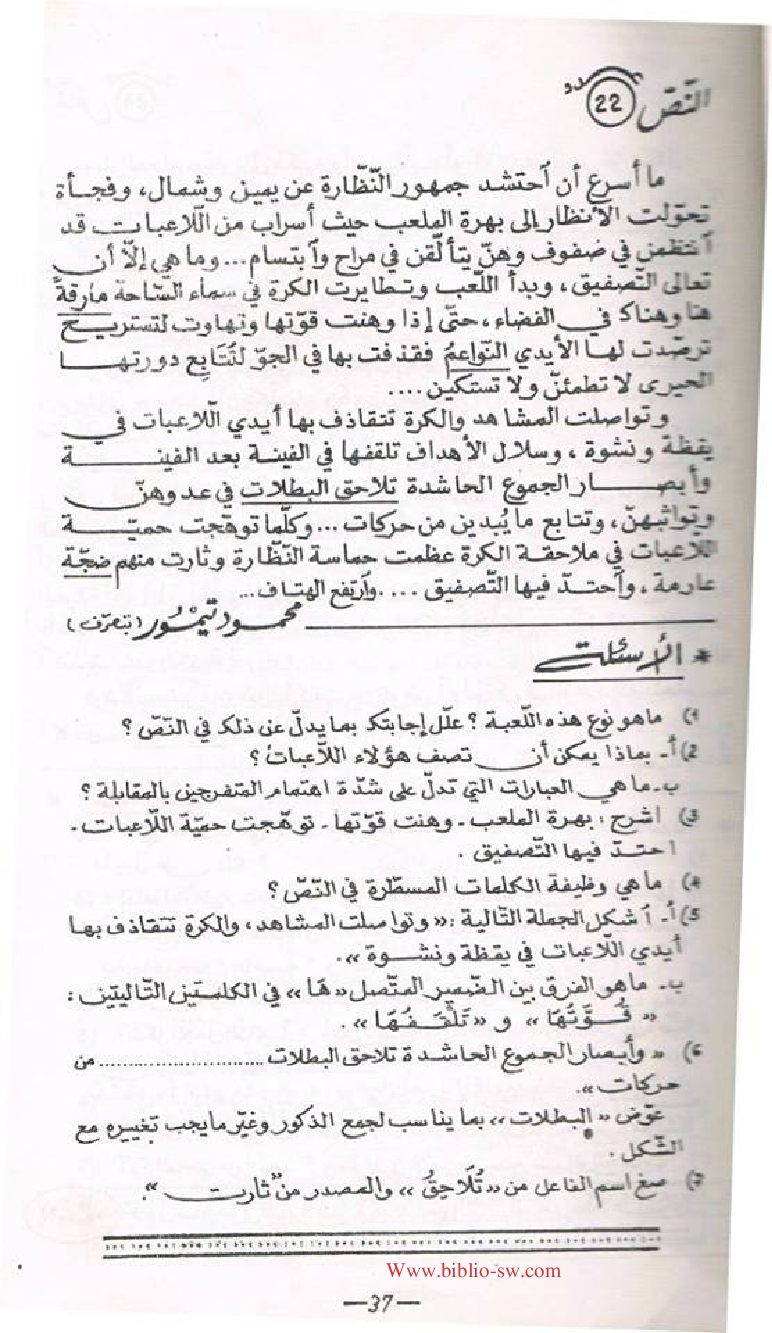 النّصّ 22
ما أسرع أن اُحتشد جمهور النّظّارة عن يمين وشمال، وفجأة
تحوّلت الأنظار إلى بهرة الملعب حيث أسراب من اللّاعبات قد
اَنتظمن في صفوف وهنّ يتألّقن في مراح واَبتسام... وما هي إلّا أن
تعالى التّصفيق، وبدأ اللّعب وتطايرت الكرة في سماء السّاحة مارقةً
هنا وهناك في الفضاء، حتّى إذا وهنت قوّتها وتهاوت لتستريح
ترصّدت لها الأيدي النّواعمُ فقذفت بها في الجوّ لتُتَابِع دورتها
الحيرى لا تطمئنّ ولا تستكين....
وتواصلت المشاهد والكرة تتقاذف بها أيدي اللّاعبات في
يقظة ونشوة، وسلال الأهداف تلقفها في الفينة بعد الفينة
وأبصار الجموع الحاشدة تلاحق البطلات في عدوهنّ
وتواثبهنّ، وتتابع ما يُبدين من حركات... وكلّما توهّجت حميّة
اللاعبات في ملاحقة الكرة عظمت حماسة النّظّارة وثارت منهم ضجّة
عارمة، واَحتدّ فيها التّصفيق .... واَرتفع الهتاف...
محمود تيمُور (بتصرّف)
* الأسئلة
1) ما هو نوع هذه اللّعبة؟ علّل إجابتك بما يدلّ عن ذلك في النّصّ؟
2) أ- بماذا يمكن أن تصف هؤلاء اللّاعبات؟
ب- ما هي العبارات التي تدلّ على شدّة اهتمام المتفرجين بالمقابلة؟
3) اشرح: بهرة الملعب - وهنت قوّتها - توهّجت حميّة اللاعبات -
احتدّ فيها التّصفيق.
4) ما هي وظيفة الكلمات المسطّرة في النّصّ؟
5) أ- اُشكل الجملة التّالية: «وتواصلت المشاهد، والكرة تتقاذف بها
أيدي اللّاعبات في يقظة ونشوة».
ب- ما هو الفرق بين الضمير المتّصل «هَا» في الكلمتين التّاليتين:
«قُوَّتُهَا» و «تَلْقَفُهَا».
6) «وأبصار الجموع الحاشدة تلاحق البطلات .......................... من
حركات».
عوّض «البطلات» بما يناسب لجمع الذكور وغيّر ما يجب تغييره مع
الشّكل.
7) صغ اسم الفاعل من «تُلَاحِقُ» والمصدر من "ثارت".
Www.biblio-sw.com
—37—